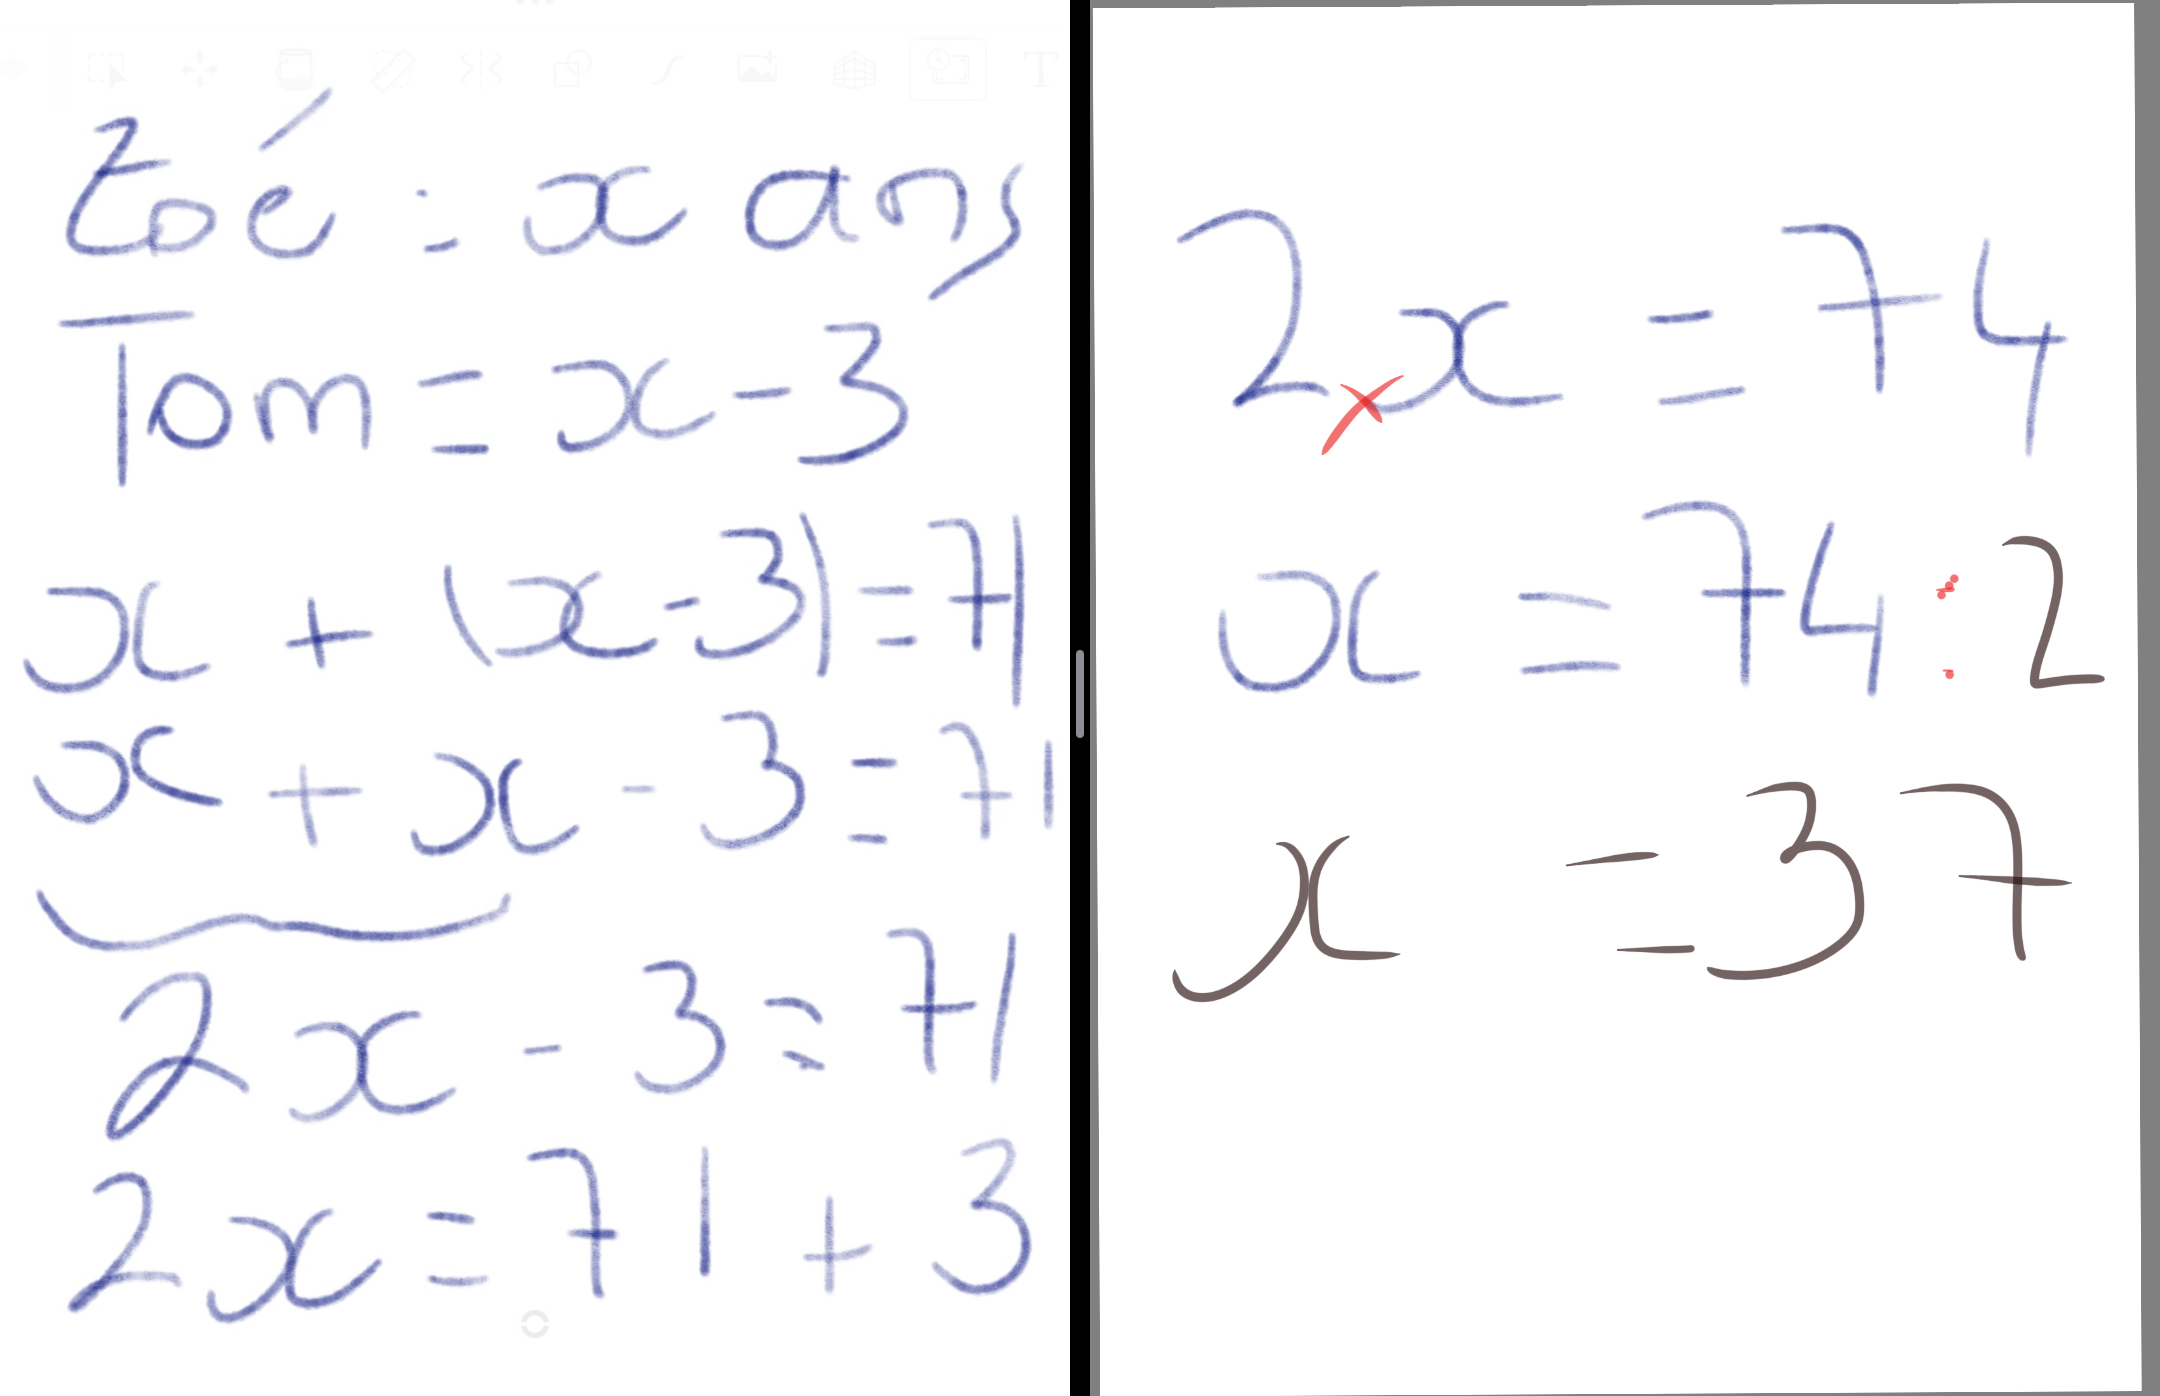 Zoé : x ans
Tom = x - 3
x + (x - 3) = 71
x + x - 3 = 71
2x - 3 = 71
2x = 71 + 3
2x = 74
x = 74 : 2
x = 37